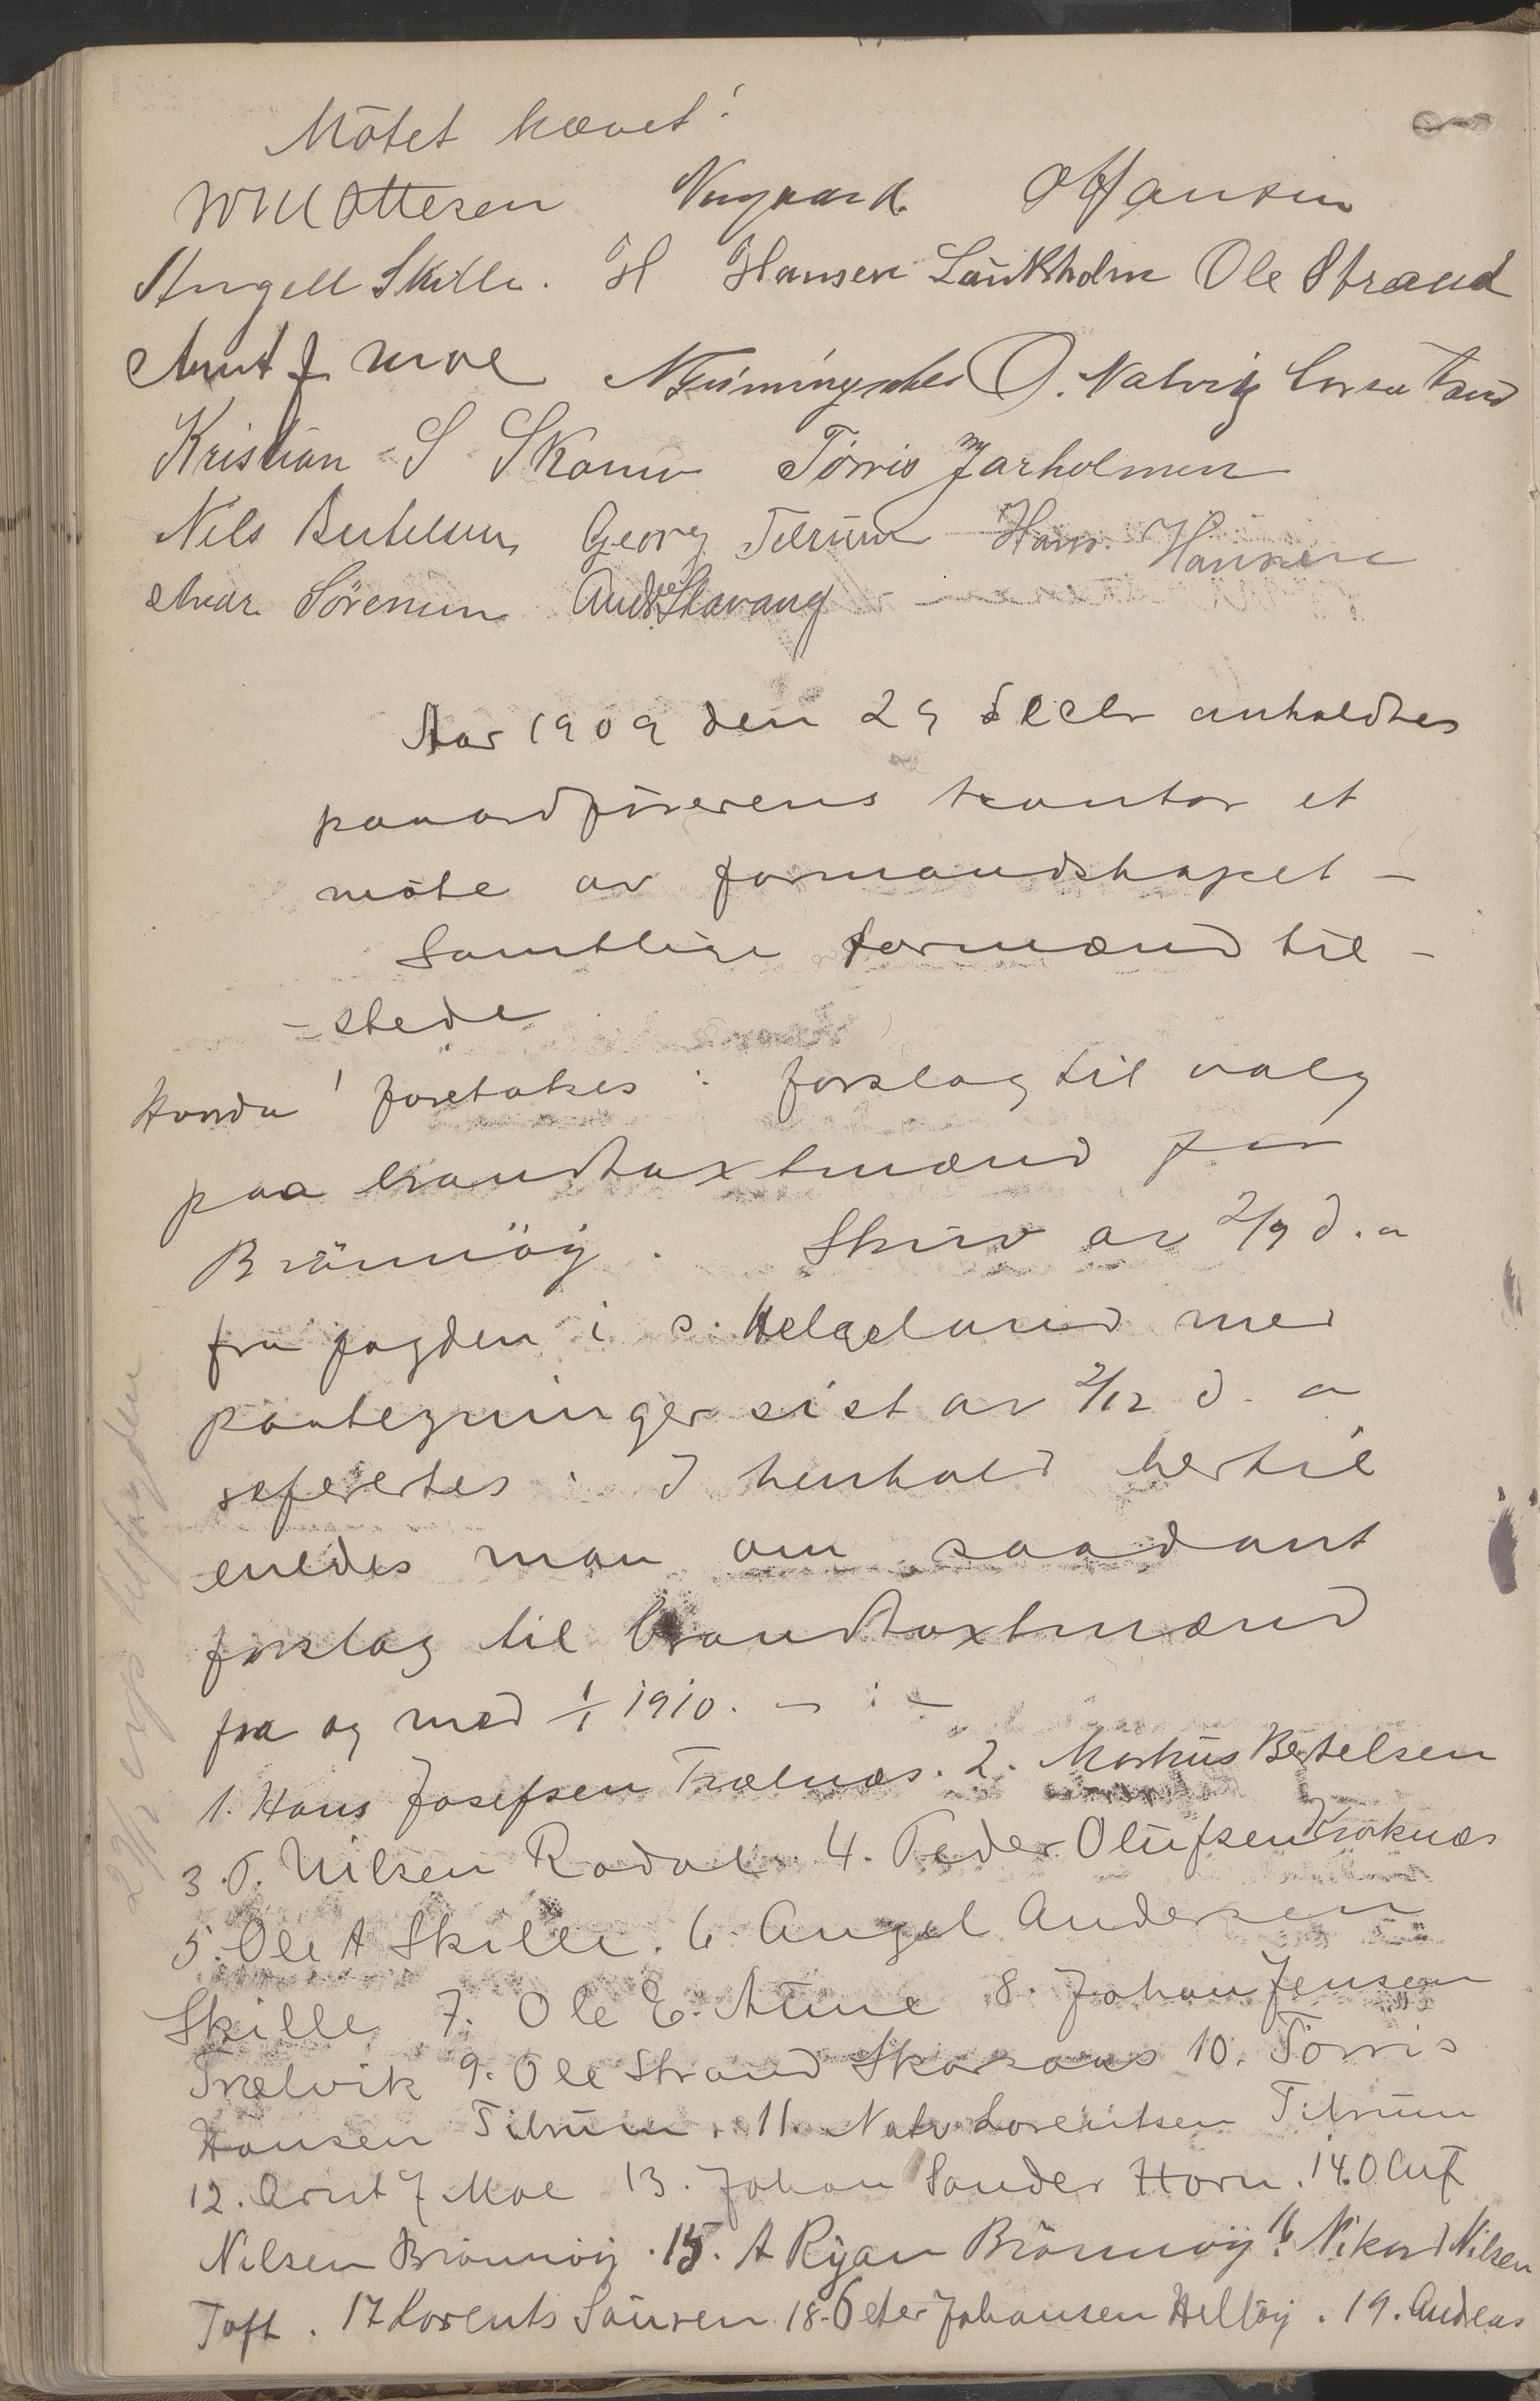 Mötet hævet!
WM Ottesen Nygaard. O Hansen
Angell Skille. H Hansen Laukholm Ole Strand
Arnt J Moe O. Natvig
Kristian S Skomo Törris M Jarholmen
Nils Bertelsen Georg Tilrum Hans. Hansen
Andr. Sörensen Andr Stavang
Aar 1909 den 29 decbr anholdtes
paa ordförerens kontor et
möte av formandskapet –
Samtlige formænd til –
– stede
Hvorda! foretokes : forslag til valg
paa brandtaxtmænd for
Brönnöy . Skriv av 2/9 d. a
fra fogden i s. Helgeland med
paategninger sist av 2/12 d. a
referertes : I henhold hertil
enedes man om saadant
forslag til brandtaxtmænd
fra og med 1/1 1910. – : –
1. Hans Josefsen Trælnæs. 2. Markus Bertelsen
3. O. Nilsen Rodal. 4. Peder Olufsen Kroknæs
5. Ole A Skille. 6. Angel Andersen
Skille 7. Ole E. Aune 8. Johan Jensen
Trælvik 9. Ole Strand Skarsaas 10. Törris
Hansen Tilrum. 11. Natv. Lorentsen Tilrum
12. Arnt J Moe 13. Johan Sander Horn. 14. O Auf
Nilsen Brönnöy. 15. A Ryan Brönnöy. 16 Nikard Nilsen
Toft. 17 Lorents Sauren 18. Peter Johansen Helløy. 19. Andreas
29/12 exp til fogden